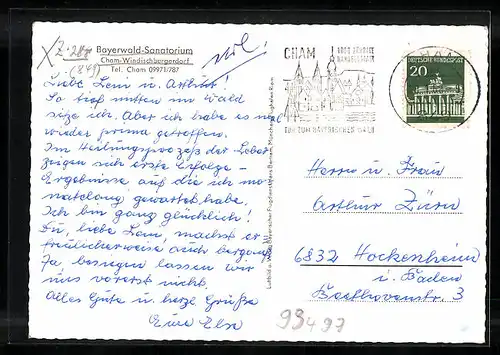 Z. 288
(849)
Bayerwald-Sanatorium
Cham-Windischbergerdorf
Tel. Cham 09971/787
Liebe Leni u. Arthur!
So tief mitten im Wald
sitze ich. Aber ich habe es mal
wieder prima getroffen.
Im Heilungsprozeß der Leber
zeigen sich erste Erfolge -
Ergebnisse, auf die ich mo-
natelang gewartet habe.
Ich bin ganz glücklich!
Du, liebe Leni, machst er-
freulicherweise auch bergauf.
Ja besiegen lassen wir
uns vorerst nicht.
Alles Gute u. herzl. Grüße
Eure Elsa
CHAM
TOR ZUM BAYERISCHEN WALD
DEUTSCHE BUNDESPOST
20
CHAM
Herrn u. Frau
Arthur Zürn
6832 Hockenheim
i. Baden
Beethovenstr. 3
93497